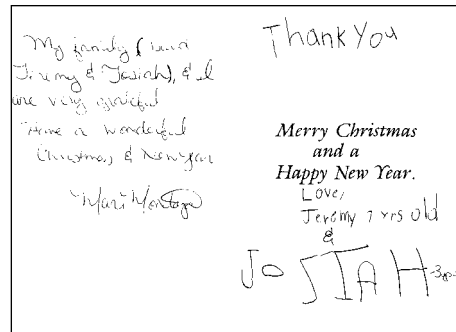 My family (
Jeremy & Josiah), & I
are very grateful
Have a wonderful
Christmas & New Year
Mari
Thank You
Merry Christmas
and a
Happy New Year.
Love,
Jeremy 7 yrs old
&
JOSIAH